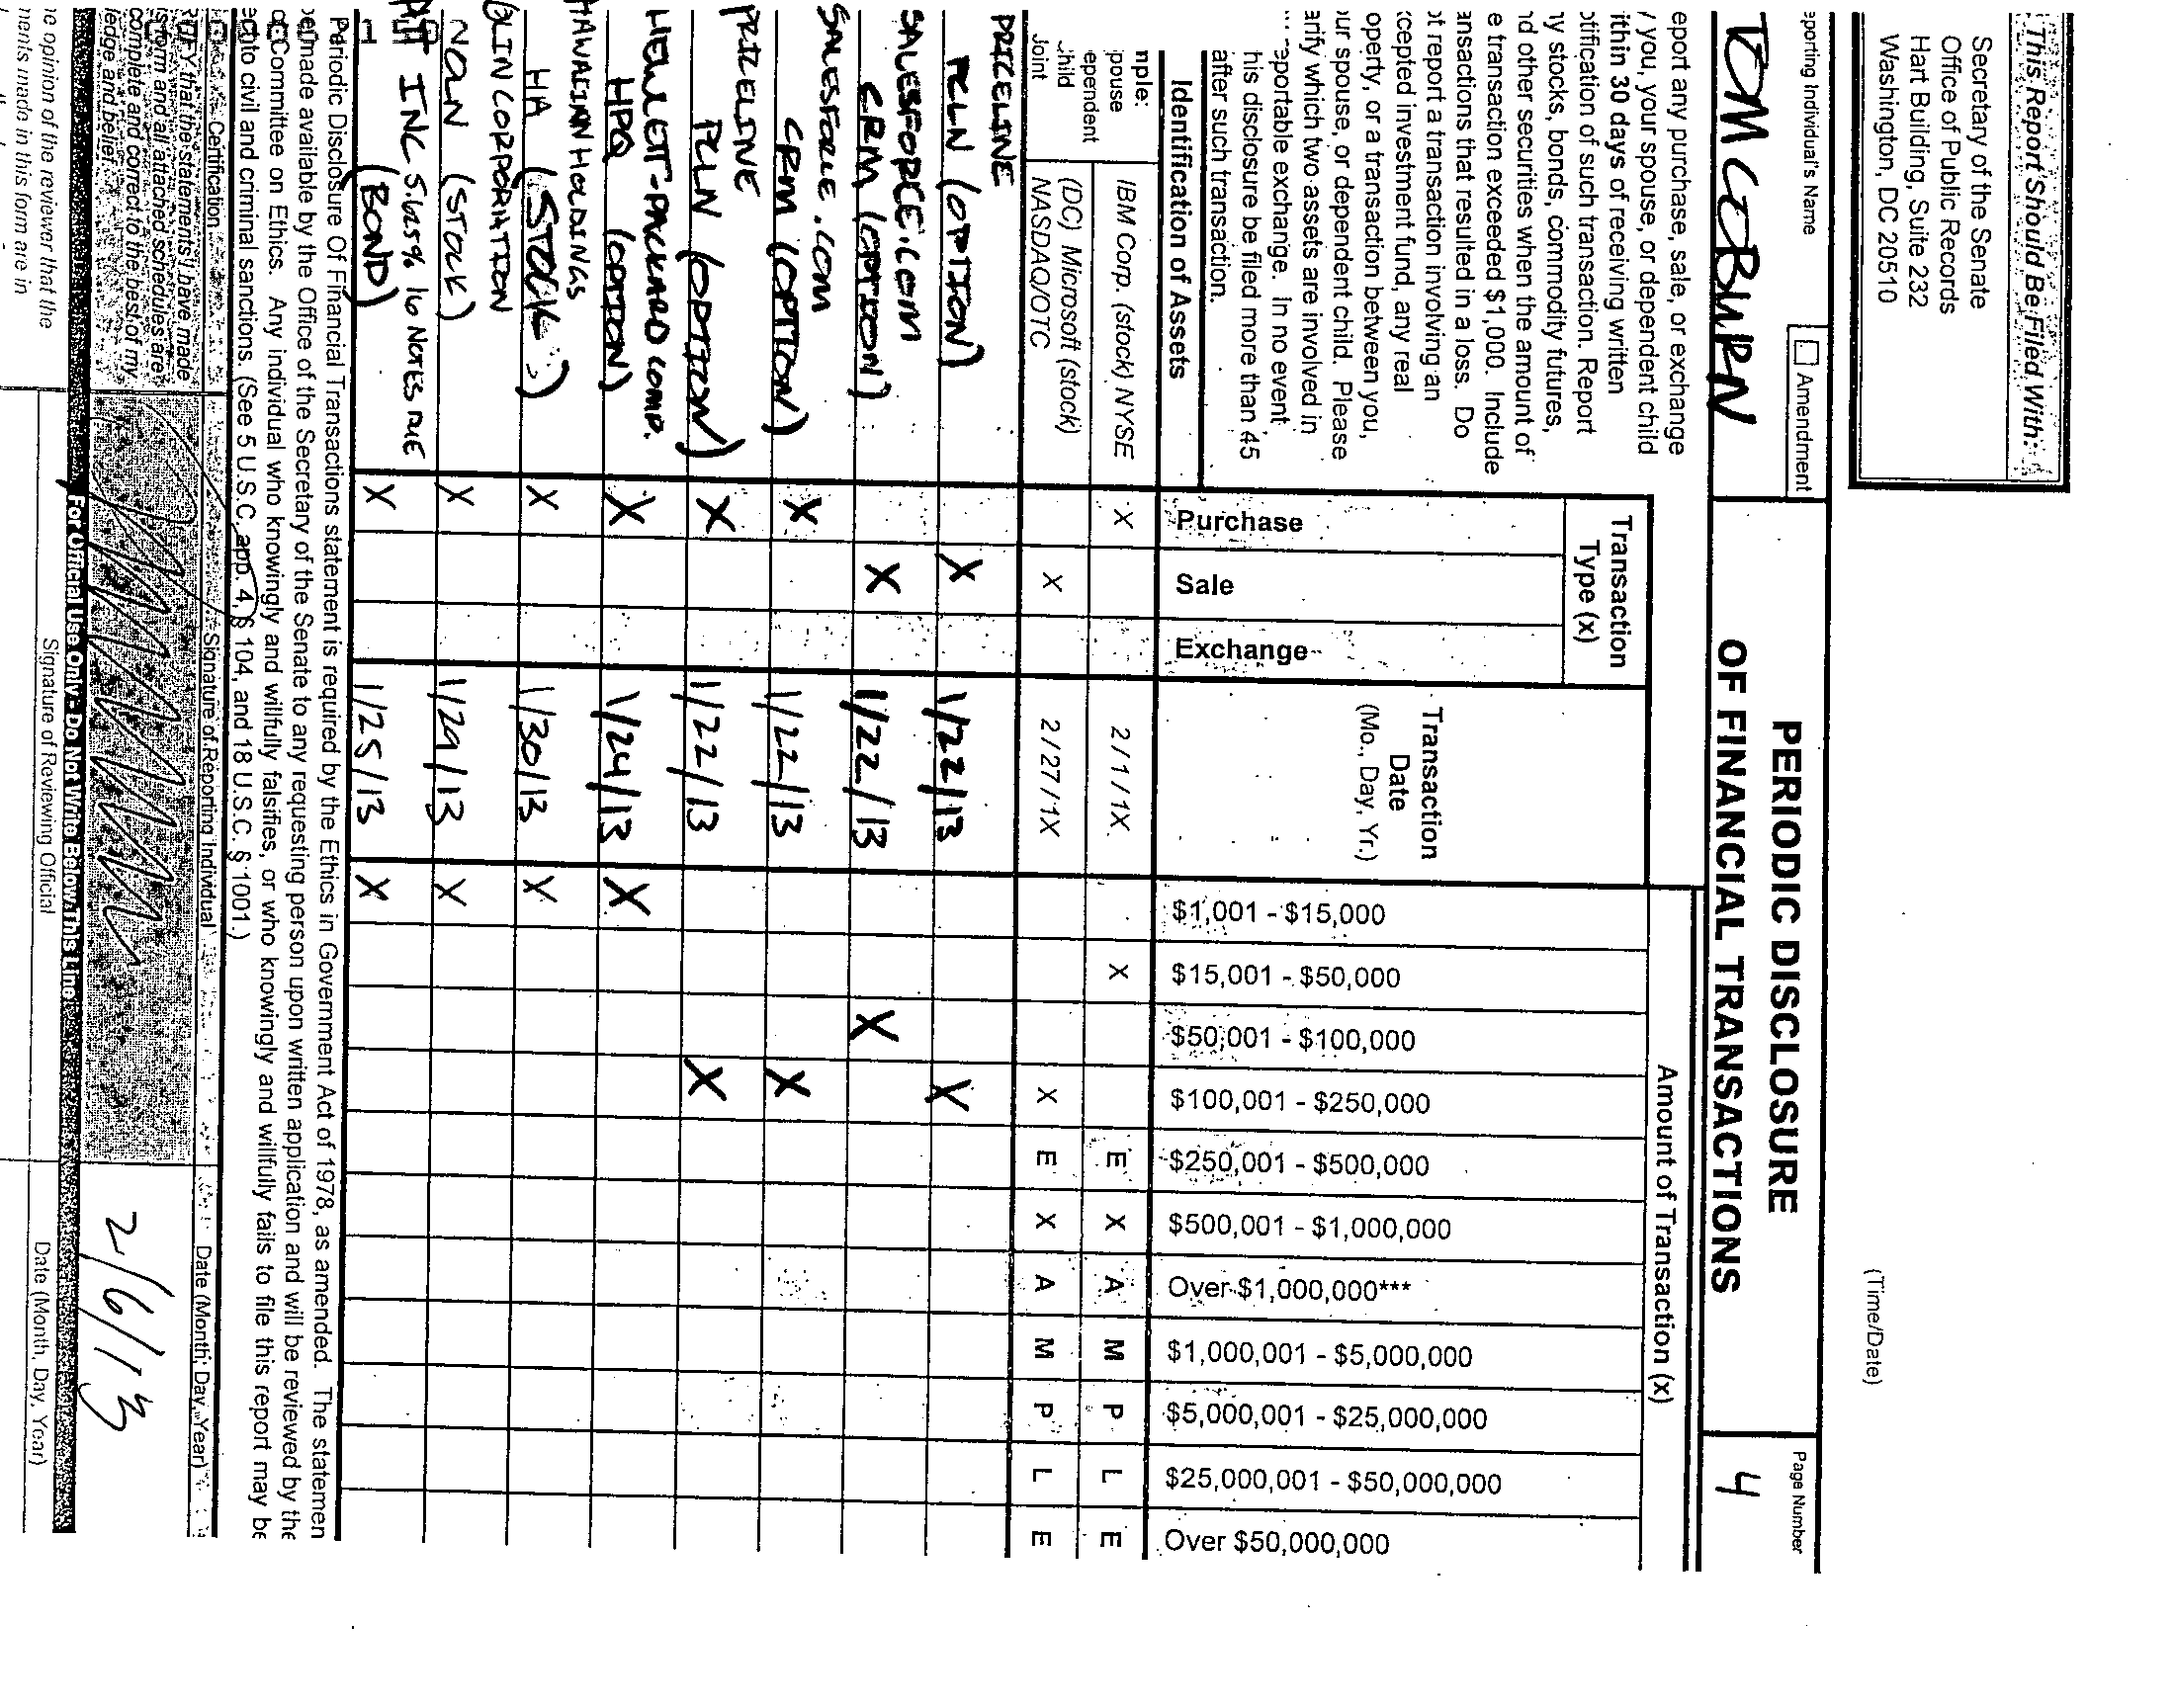 This Report Should Be Filed With:
Secretary of the Senate
Office of Public Records
Hart Building, Suite 232
Washington, DC 20510
(Time/Date)
eporting Individual's Name
Amendment
TOM COBURN
PERIODIC DISCLOSURE
OF FINANCIAL TRANSACTIONS
Page Number
4
eport any purchase, sale, or exchange
y you, your spouse, or dependent child
ithin 30 days of receiving written
otification of such transaction. Report
ny stocks, bonds, commodity futures,
nd other securities when the amount of
e transaction exceeded $1,000. Include
ansactions that resulted in a loss. Do
ot report a transaction involving an
xcepted investment fund, any real
operty, or a transaction between you,
our spouse, or dependent child. Please
arify which two assets are involved in
eportable exchange. In no event
his disclosure be filed more than 45
after such transaction.
Transaction
Type (x)
Transaction
Date
(Mo., Day, Yr.)
Amount of Transaction (x)
Identification of Assets
Purchase
Sale
Exchange
$1,001 - $15,000
$15,001 - $50,000
$50,001 - $100,000
$100,001 - $250,000
$250,001 - $500,000
$500,001 - $1,000,000
Over $1,000,000***
$1,000,001 - $5,000,000
$5,000,001 - $25,000,000
$25,000,001 - $50,000,000
Over $50,000,000
nple:
pouse
ependent
hild
Joint
IBM Corp. (stock) NYSE X 2/1/1X X E X A M P L E
(DC) Microsoft (stock)
NASDAQ/OTC X 2/27/1X X E X A M P L E
PRICELINE
PCLN (OPTION) X 1/22/13 X
SALESFORCE.COM
CRM (OPTION) X 1/22/13 X
SALESFORCE.COM
CRM (OPTION) X 1/22/13 X
PRICELINE
PCLN (OPTION) X 1/22/13 X
HEWLETT-PACKARD COMP.
HPQ (OPTION) X 1/24/13 X
HAWAIIAN HOLDINGS
HA (STOCK) X 1/30/13 X
OLIN CORPORATION
(STOCK) X 1/29/13 X
INC 5.625% 16 NOTES DUE
(BOND) X 1/25/13 X
Periodic Disclosure Of Financial Transactions statement is required by the Ethics in Government Act of 1978, as amended. The statemen
be made available by the Office of the Secretary of the Senate to any requesting person upon written application and will be reviewed by the
Committee on Ethics. Any individual who knowingly and willfully falsifies, or who knowingly and willfully fails to file this report may be
to civil and criminal sanctions. (See 5 U.S.C. app. 4, § 104, and 18 U.S.C. § 1001.)
Certification
Signature of Reporting Individual
Date (Month, Day, Year)
FY that the statements I have made
s form and all attached schedules are
complete and correct to the best of my
ledge and belief.
2/6/13
For Official Use Only - Do Not Write Below This Line
ne opinion of the reviewer that the
nents made in this form are in
Signature of Reviewing Official
Date (Month, Day, Year)